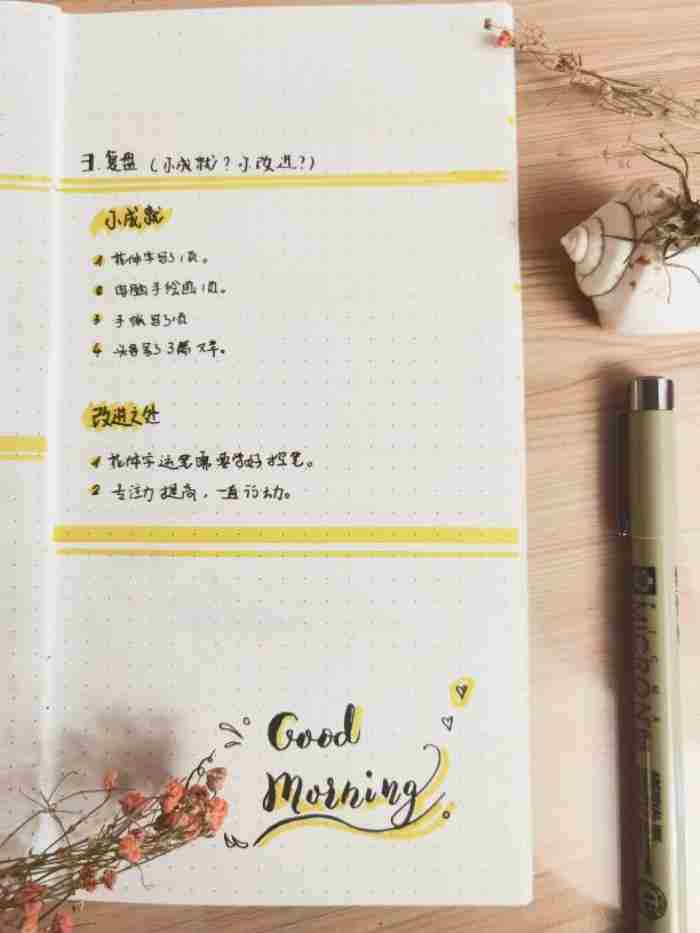 3. 复盘 (小成就? 小改进?)
小成就
1 花体字写了1页。
2 电脑手绘画1页。
3 手帐写了1页
4 头条写了3篇文章。
改进之处
1 花体字运笔还要学好控笔。
2 专注力提高,一直行动。
Good
Morning
MICRON